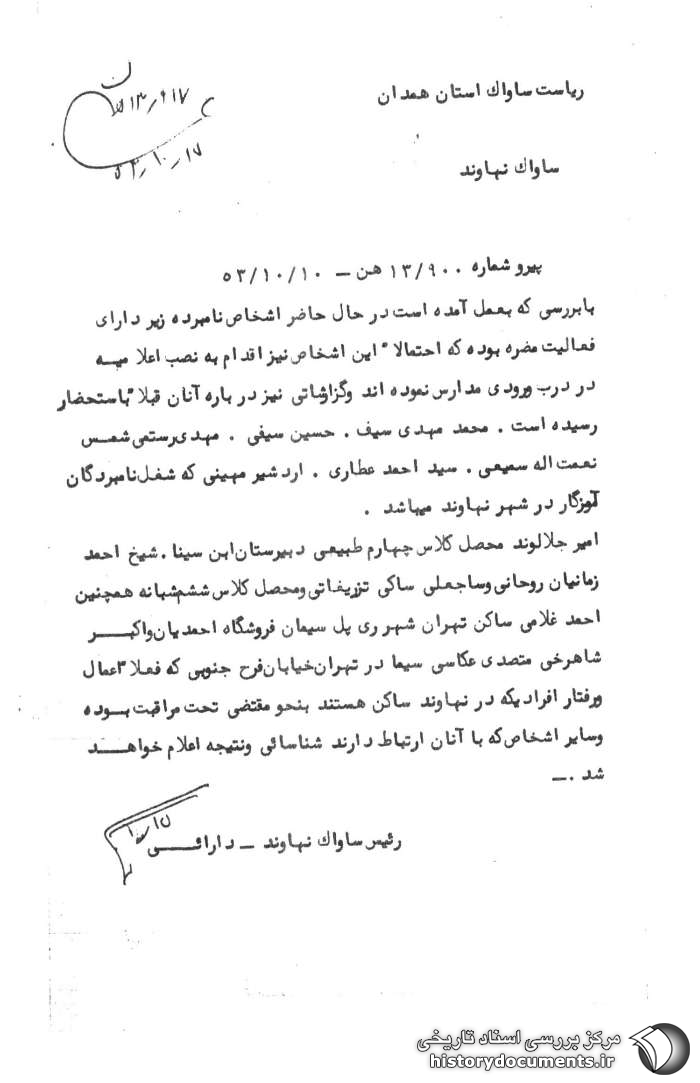 ریاست ساواك استان همدان
ساواك نهاوند
۱۳٫۹۱۷
۵۳٫۱۰٫۱۷
پیرو شماره ۱۳/۹۰۰ هن – ۵۳/۱۰/۱۰
با بررسی که بعمل آمده است در حال حاضر اشخاص نامبرده زیر دارای
فعالیت مضره بوده که احتمالا" این اشخاص نیز اقدام به نصب اعلا میــه
در درب ورودی مدارس نموده اند وگزارشاتی نیز در باره آنان قبلا" باستحضار
رسیده است . محمد مهدی سیف . حسین سیفی . مهدی رستمی شمــس
نعمت اله سمیعی . سید احمد عطاری . اردشیر مهینی که شغل نامبردگان
آموزگار در شهر نهاوند میباشد .
امیر جلالوند محصل کلاس چهارم طبیعی دبیرستان ابن سینا . شیخ احمد
زمانیان روحانی وساجعلی ساکی تزریقاتی ومحصل کلاس ششم شبانه همچنین
احمد غلامی ساکن تهران شهر ری پل سیمان فروشگاه احمدیان واکبــر
شاهرخی متصدی عکاسی سیما در تهران خیابان فرح جنوبی که فعلا" اعمال
ورفتار افرادیکه در نهاوند ساکن هستند بنحو مقتضی تحت مراقبت بــوده
وسایر اشخاص که با آنان ارتباط دارند شناسائی ونتیجه اعلام خواهــد
شد .ــ
رئیس ساواك نهاوند – دارائــی
۱۰٫۱۵
مرکز بررسی اسناد تاریخی
historydocuments.ir